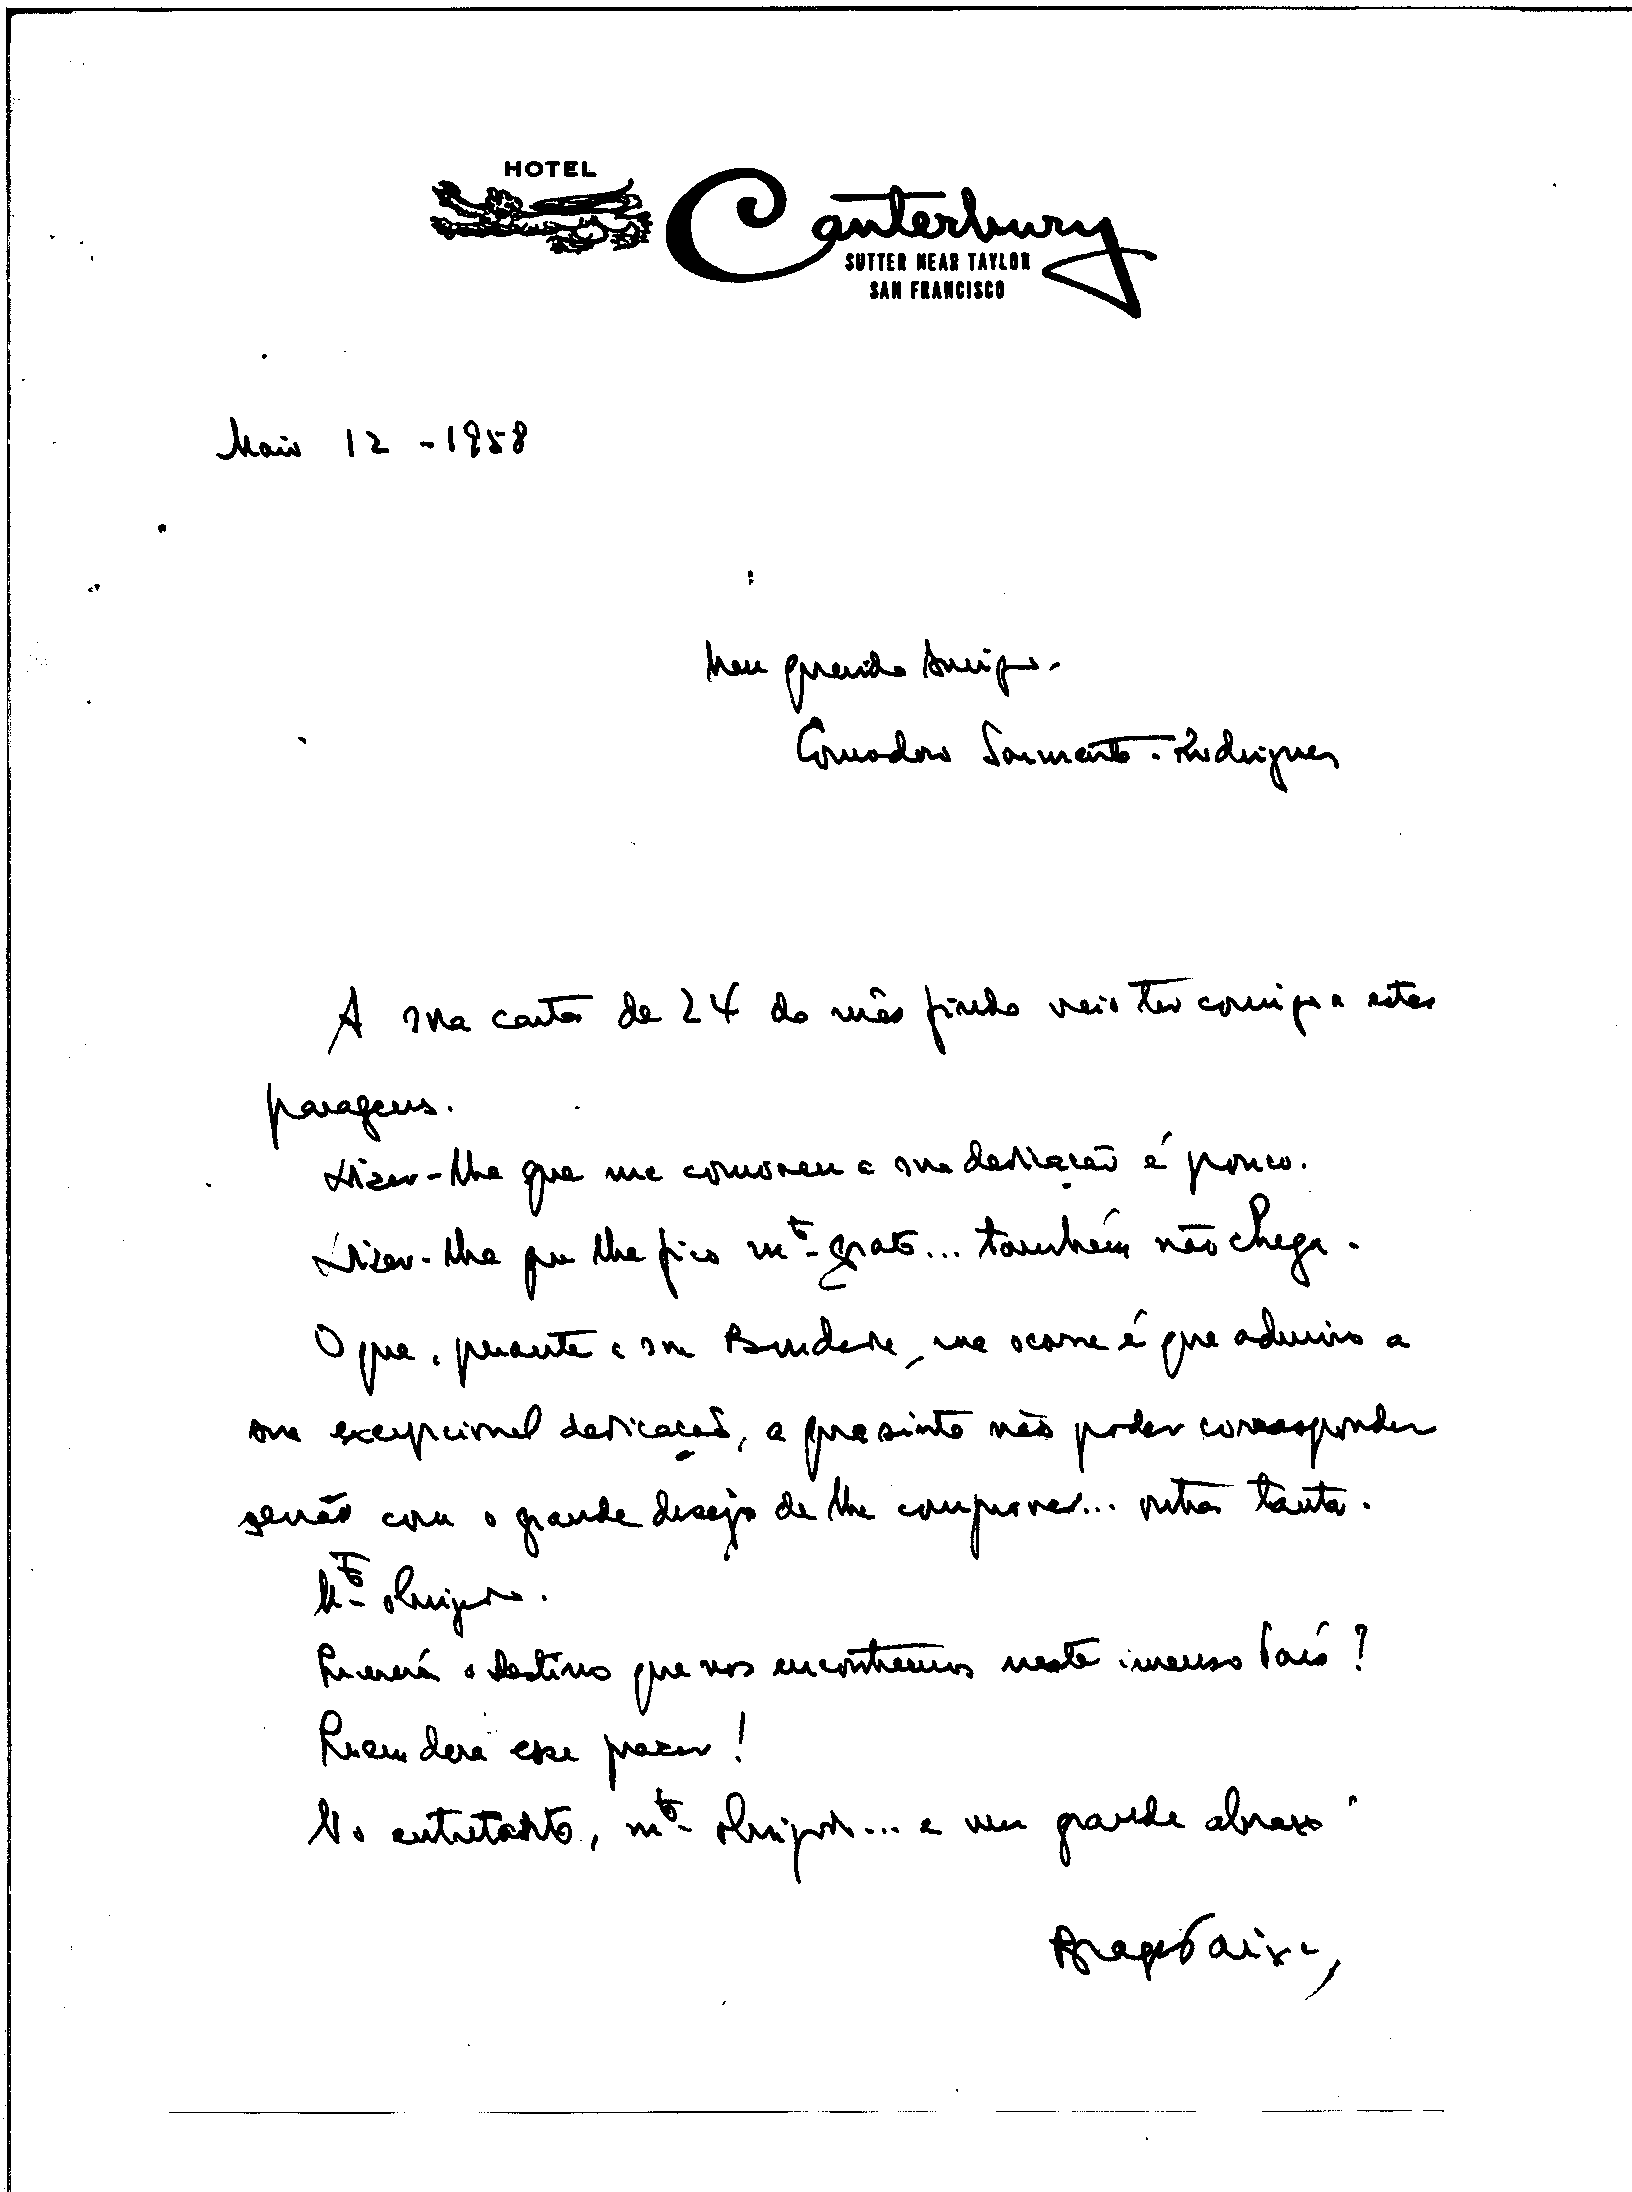 HOTEL
Canterbury
SUTTER NEAR TAYLOR
SAN FRANCISCO
Maio 12 - 1958
Meu querido Amigo.
Comodoro Sarmento-Rodrigues
A sua carta de 24 do mês findo veio ter comigo a estas
paragens.
Dizer-lhe que me comoveu a sua dedicação é pouco.
Dizer-lhe que lhe fico mto grato... também não chega.
O que, perante a sua Bondade, me ocorre é que admiro a
sua excepcional dedicação, a que sinto não poder corresponder
senão com o grande desejo de lhe comprovar... outra tanta.
Mto obrigado.
Quererá o destino que nos encontremos neste imenso País?
Quem dera esse prazer!
No entretanto, mto obrigado... e um grande abraço
Braga Paixão